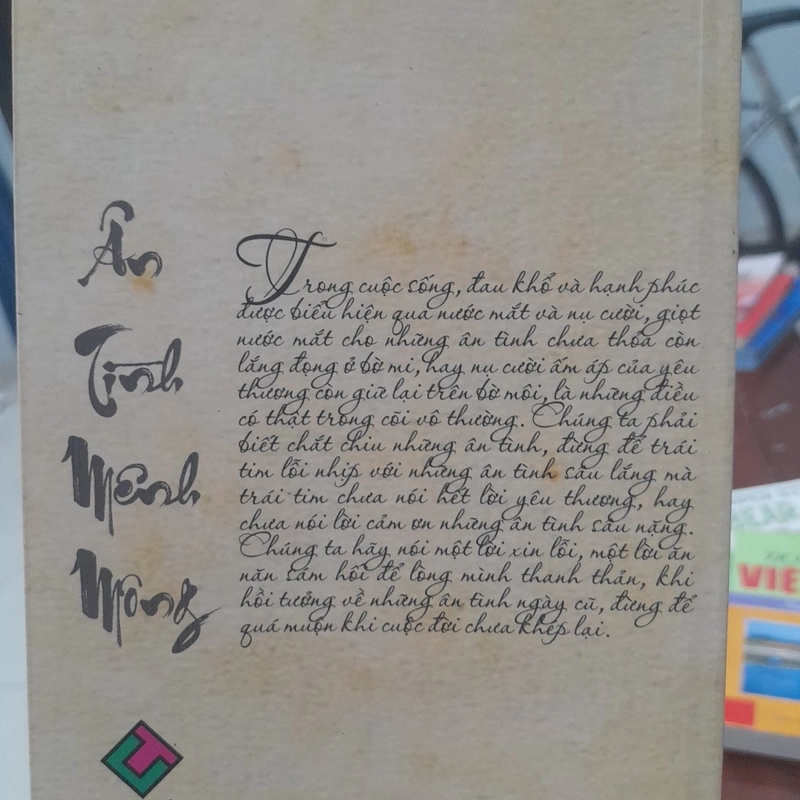 Ân
Tình
Mênh
Mông
Trong cuộc sống, đau khổ và hạnh phúc
được biểu hiện qua nước mắt và nụ cười, giọt
nước mắt cho những ân tình chưa thỏa còn
lắng đọng ở bờ mi, hay nụ cười ấm áp của yêu
thương còn giữ lại trên bờ môi, là những điều
có thật trong cõi vô thường. Chúng ta phải
biết chắt chiu những ân tình, đừng để trái
tim lỗi nhịp với những ân tình sâu lắng mà
trái tim chưa nói hết lời yêu thương, hay
chưa nói lời cảm ơn những ân tình sâu nặng.
Chúng ta hãy nói một lời xin lỗi, một lời ăn
năn sám hối để lòng mình thanh thản, khi
hồi tưởng về những ân tình ngày cũ, đừng để
quá muộn khi cuộc đời chưa khép lại.
VIE